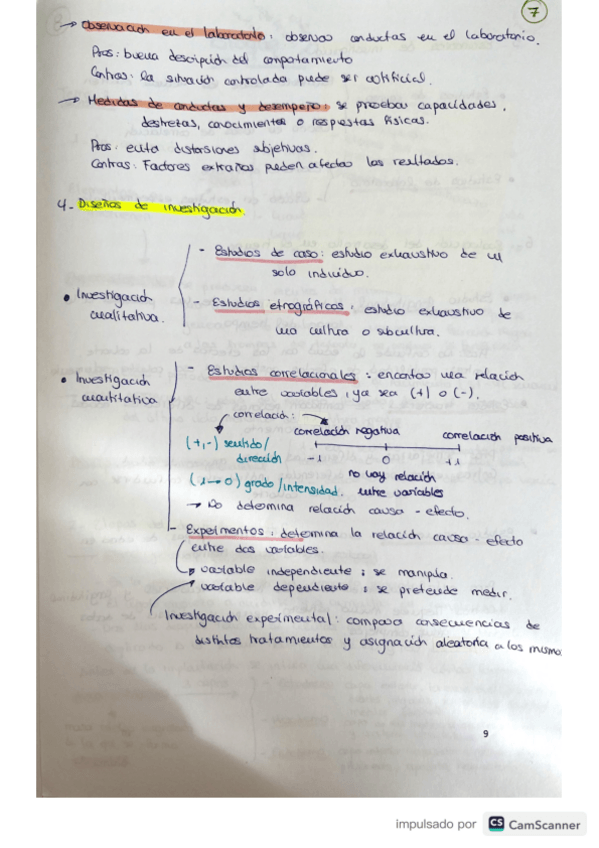 7
→ Observación en el laboratorio: observar conductas en el laboratorio.
Pros: buena descripción del comportamiento
Contras: la situación controlada puede ser artificial.
→ Medidas de conductas y desempeño: se prueban capacidades,
destrezas, conocimientos o respuestas físicas.
Pros: evita distorsiones subjetivas.
Contras: Factores extraños pueden afectar los resultados.
4- Diseños de investigación.
• Investigación cualitativa.
- Estudios de caso: estudio exhaustivo de un
solo individuo.
- Estudios etnográficos: estudio exhaustivo de
una cultura o subcultura.
• Investigación cuantitativa
- Estudios correlacionales: encontrar una relación
entre variables, ya sea (+) o (-).
correlación:
correlación negativa correlación positiva
(+,-) sentido/
dirección
-1 0 +1
(1→0) grado/intensidad.
no hay relación
entre variables
→ No determina relación causa - efecto.
- Experimentos: determina la relación causa - efecto
entre dos variables.
variable independiente: se manipula.
variable dependiente: se pretende medir.
Investigación experimental: compara consecuencias de
distintos tratamientos y asignación aleatoria a los mismos.
9
impulsado por CS CamScanner